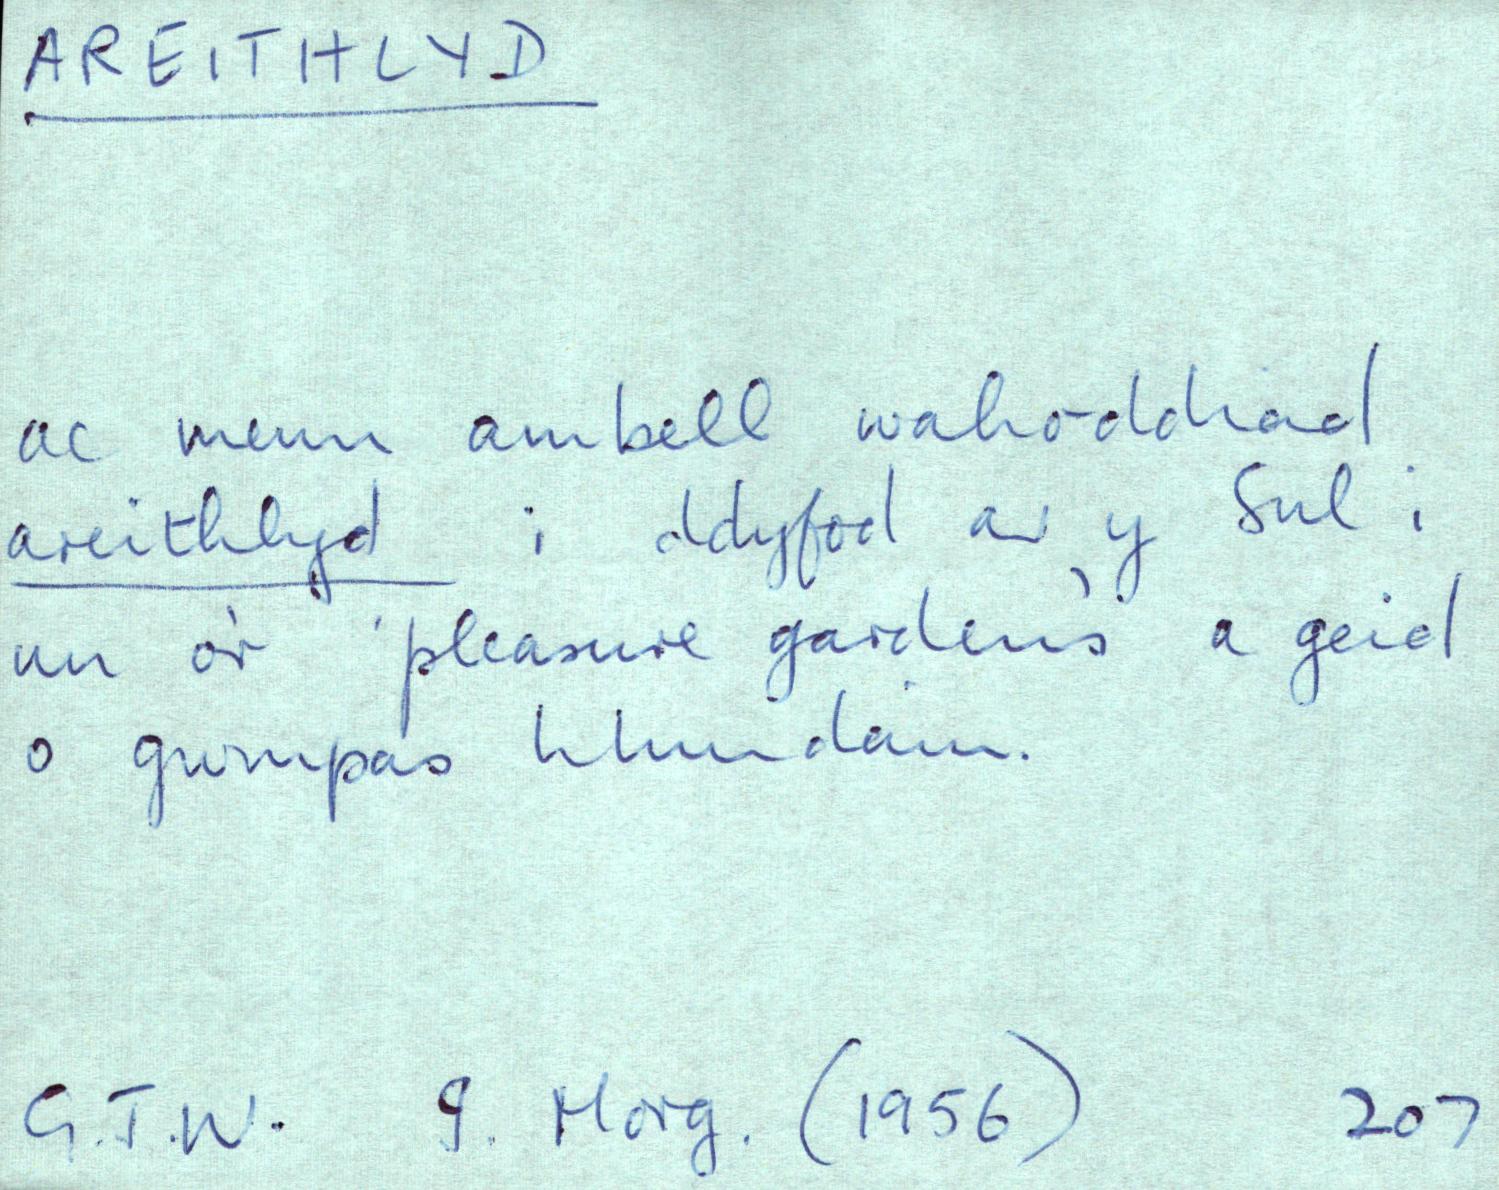 AREITHLYD
ac mewn ambell wahoddiad
areithlyd i ddyfod ar y Sul i
un o'r 'pleasure gardens' a geid
o gwmpas Llundain.
G.J.W. I. Morg. (1956) 207